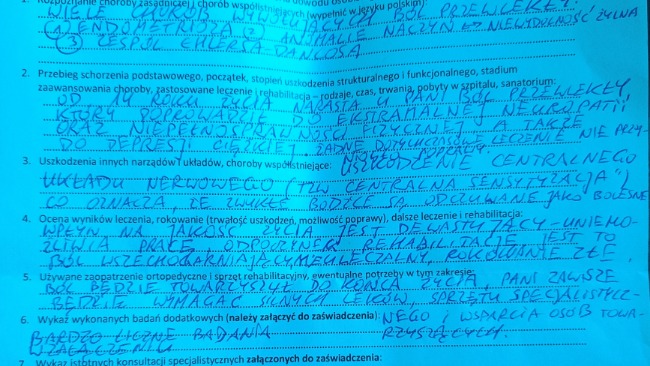 1. Rozpoznanie choroby zasadniczej i chorób współistniejących (wypełnić w języku polskim):
WIELE CHORÓB WYWOŁUJĄCYCH BÓL PRZEWLEKŁY:
① ENDOMETRIOZA ② ANOMALIE NACZYŃ NIEWYDOLNOŚĆ ŻYLNA
③ ZESPÓŁ EHLERSA-DANLOSA
2. Przebieg schorzenia podstawowego, początek, stopień uszkodzenia strukturalnego i funkcjonalnego, stadium
zaawansowania choroby, zastosowane leczenie i rehabilitacja – rodzaje, czas, trwania, pobyty w szpitalu, sanatorium:
OD 14 ROKU ŻYCIA NARASTA U PANI BÓL PRZEWLEKŁY,
KTÓRY DOPROWADZIŁ DO EKSTREMALNEJ NEUROPATII
ORAZ NIEPEŁNOSPRAWNOŚCI FIZYCZNEJ, A TAKŻE
DO DEPRESJI CIĘŻKIEJ. ŻADNE DOTYCHCZASOWE LECZENIE NIE PRZY-
3. Uszkodzenia innych narządów i układów, choroby współistniejące: USZKODZENIE CENTRALNEGO
UKŁADU NERWOWEGO (TZW CENTRALNA SENSYTYZACJA")
CO OZNACZA, ŻE ZWYKŁE BODŹCE SĄ ODCZUWANE JAKO BOLESNE
4. Ocena wyników leczenia, rokowanie (trwałość uszkodzeń, możliwość poprawy), dalsze leczenie i rehabilitacja:
WPŁYW NA JAKOŚĆ ŻYCIA JEST DEWASTUJĄCY - UNIEMO-
ŻLIWIA PRACĘ, ODPOCZYNEK, REHABILITACJĘ JEST TO
BÓL WSZECHOGARNIAJĄCY, NIEULECZALNY, ROKOWANIE ZŁE.
5. Używane zaopatrzenie ortopedyczne i sprzęt rehabilitacyjny, ewentualne potrzeby w tym zakresie:
BÓL BĘDZIE TOWARZYSZYŁ DO KOŃCA ŻYCIA, PANI ZAWSZE
BĘDZIE WYMAGAĆ SILNYCH LEKÓW, SPRZĘTU SPECJALISTYCZ-
6. Wykaz wykonanych badań dodatkowych (należy załączyć do zaświadczenia): NEGO I WSPARCIA OSÓB TOWA-
BARDZO LICZNE BADANIA RZYSZĄCYCH.
W ZAŁĄCZENIU
7. Wykaz istotnych konsultacji specjalistycznych załączonych do zaświadczenia: